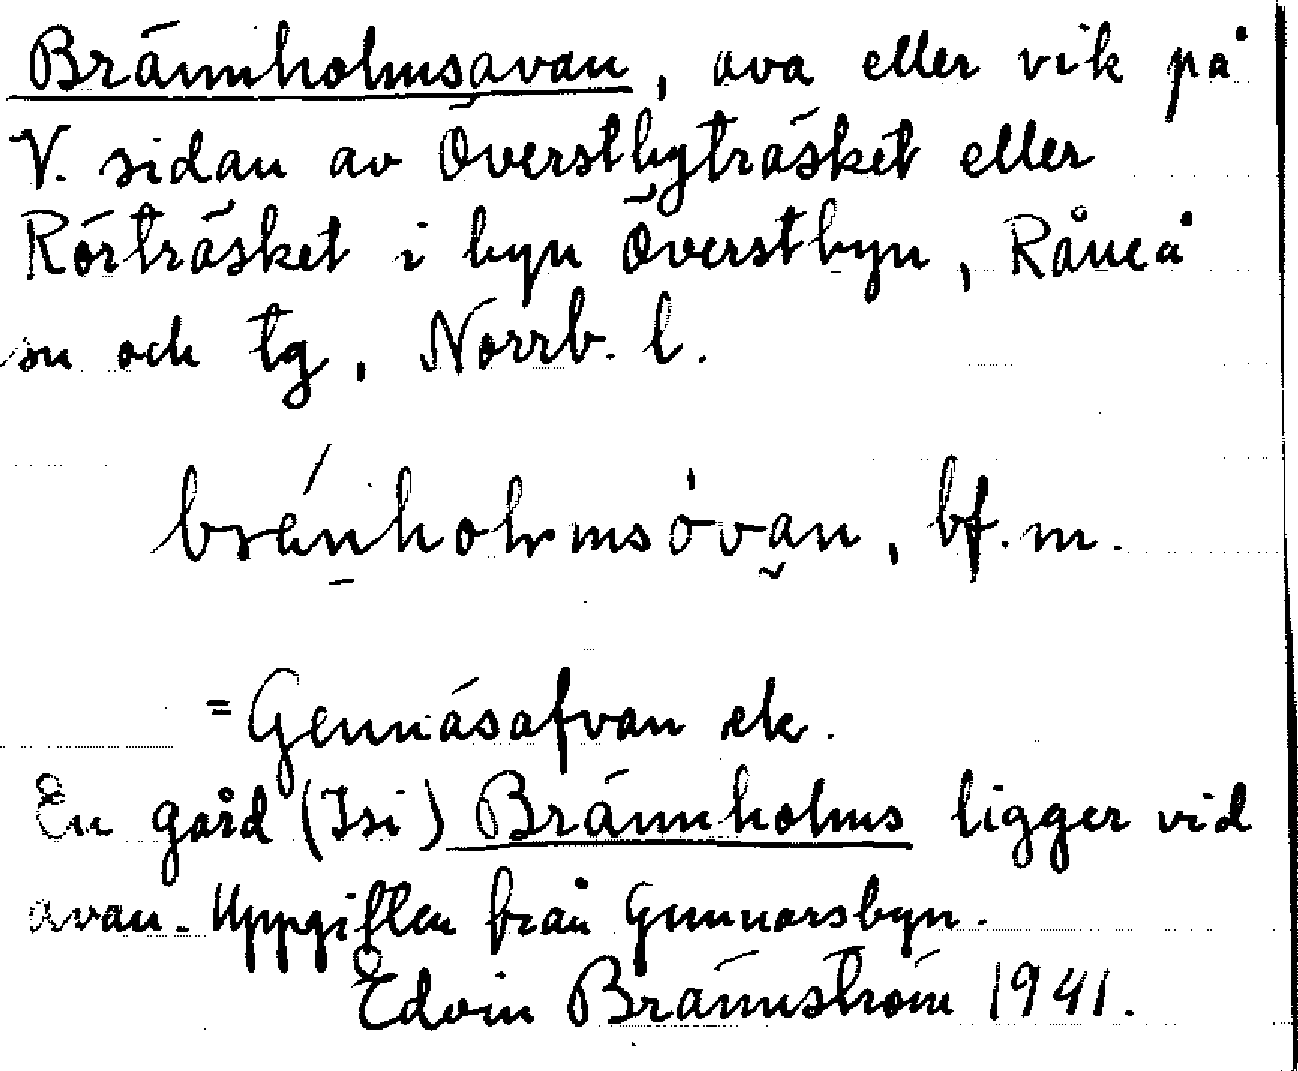 Brännholmsavan, ava eller vik på
V. sidan av Överstbyträsket eller
Rörträsket i byn Överstbyn, Råneå
sn och tg, Norrb. l.
bránholmsòvan, bf. m.
= Gennäsafvan ek.
En gård (Isi) Brännholms ligger vid
avan. Uppgiften från Gunnarsbyn.
Edvin Brännström 1941.